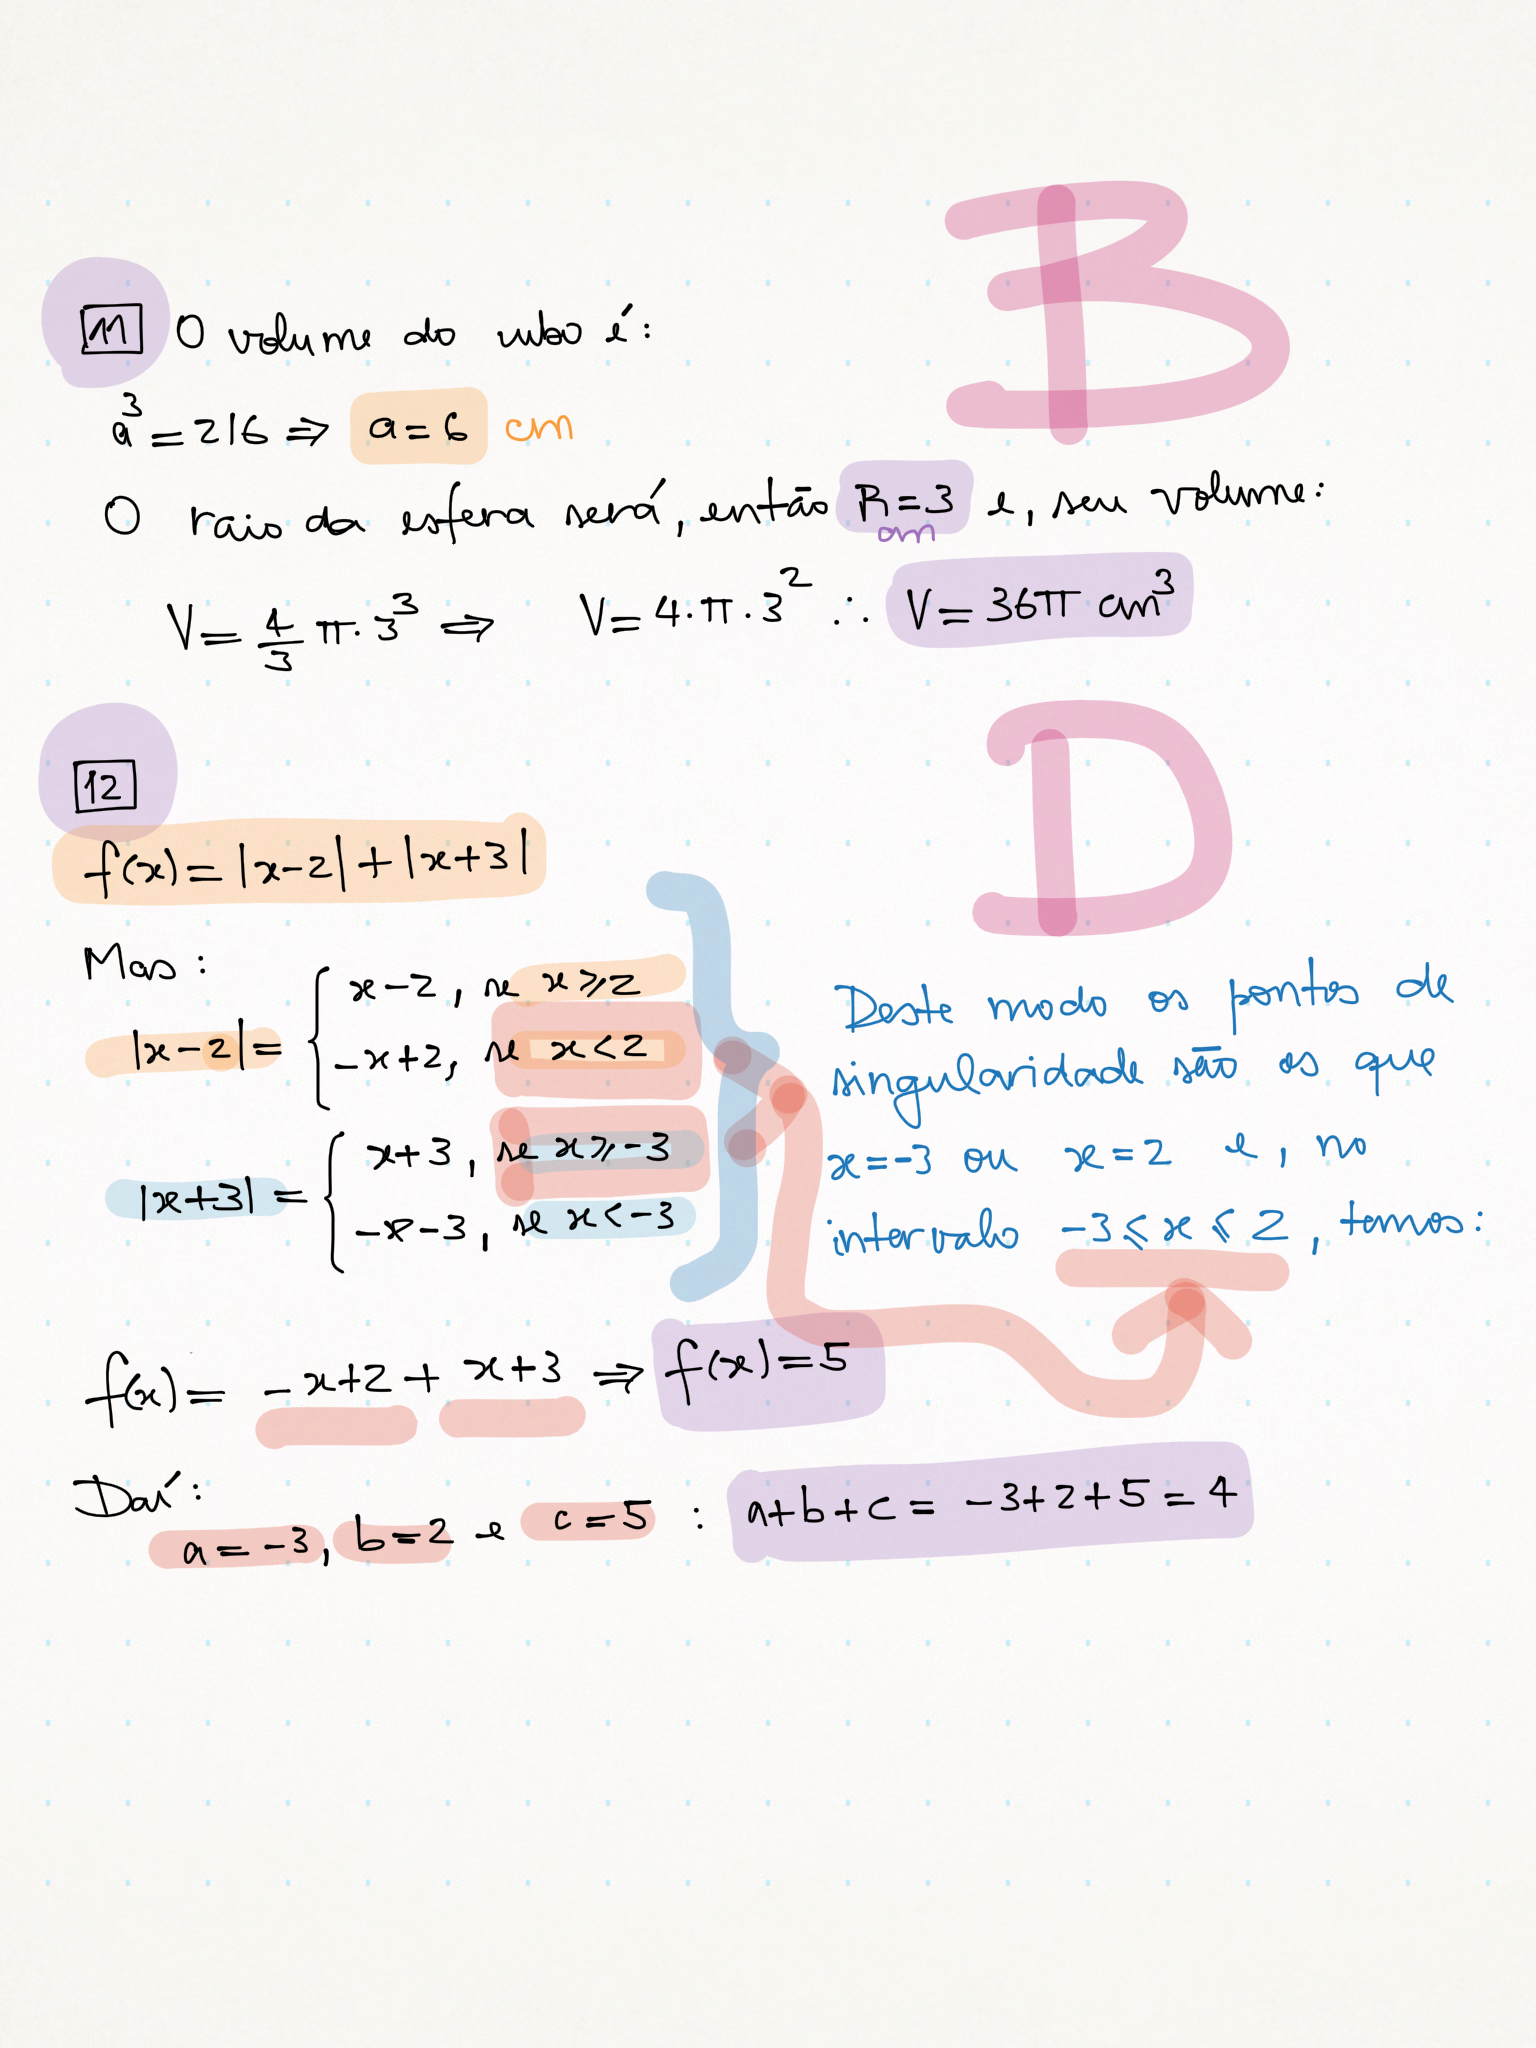 B
11 O volume do cubo é:
a³ = 216 ⇒ a = 6 cm
O raio da esfera será, então R = 3 e, seu volume:
cm
V = 4/3 π · 3³ ⇒ V = 4 · π · 3² ∴ V = 36π cm³
D
12
f(x) = |x-2| + |x+3|
Mas:
|x-2| = { x-2, se x ⩾ 2
-x+2, se x < 2
|x+3| = { x+3, se x ⩾ -3
-x-3, se x < -3
Deste modo os pontos de
singularidade são os que
x = -3 ou x = 2 e, no
intervalo -3 ⩽ x ⩽ 2, temos:
f(x) = -x+2 + x+3 ⇒ f(x) = 5
Daí:
a = -3, b = 2 e c = 5 : a+b+c = -3+2+5 = 4